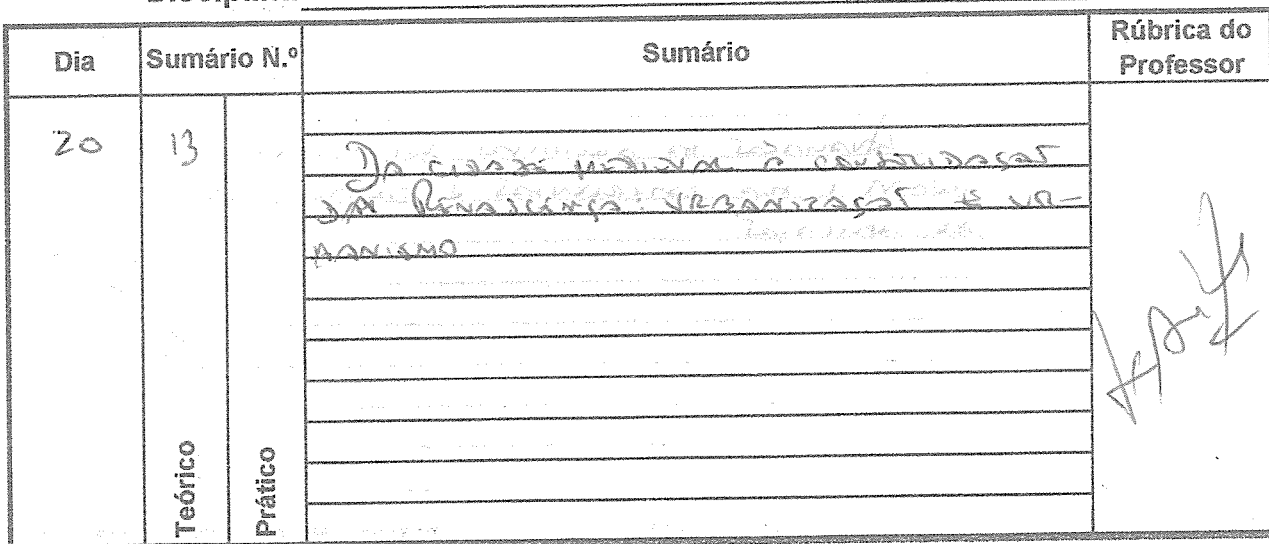 Dia Sumário N.º Sumário Rúbrica do Professor
20 13
DA CIDADE MEDIEVAL À CONSOLIDAÇÃO
DA RENASCENÇA: URBANIZAÇÃO E UR-
BANISMO
Teórico Prático